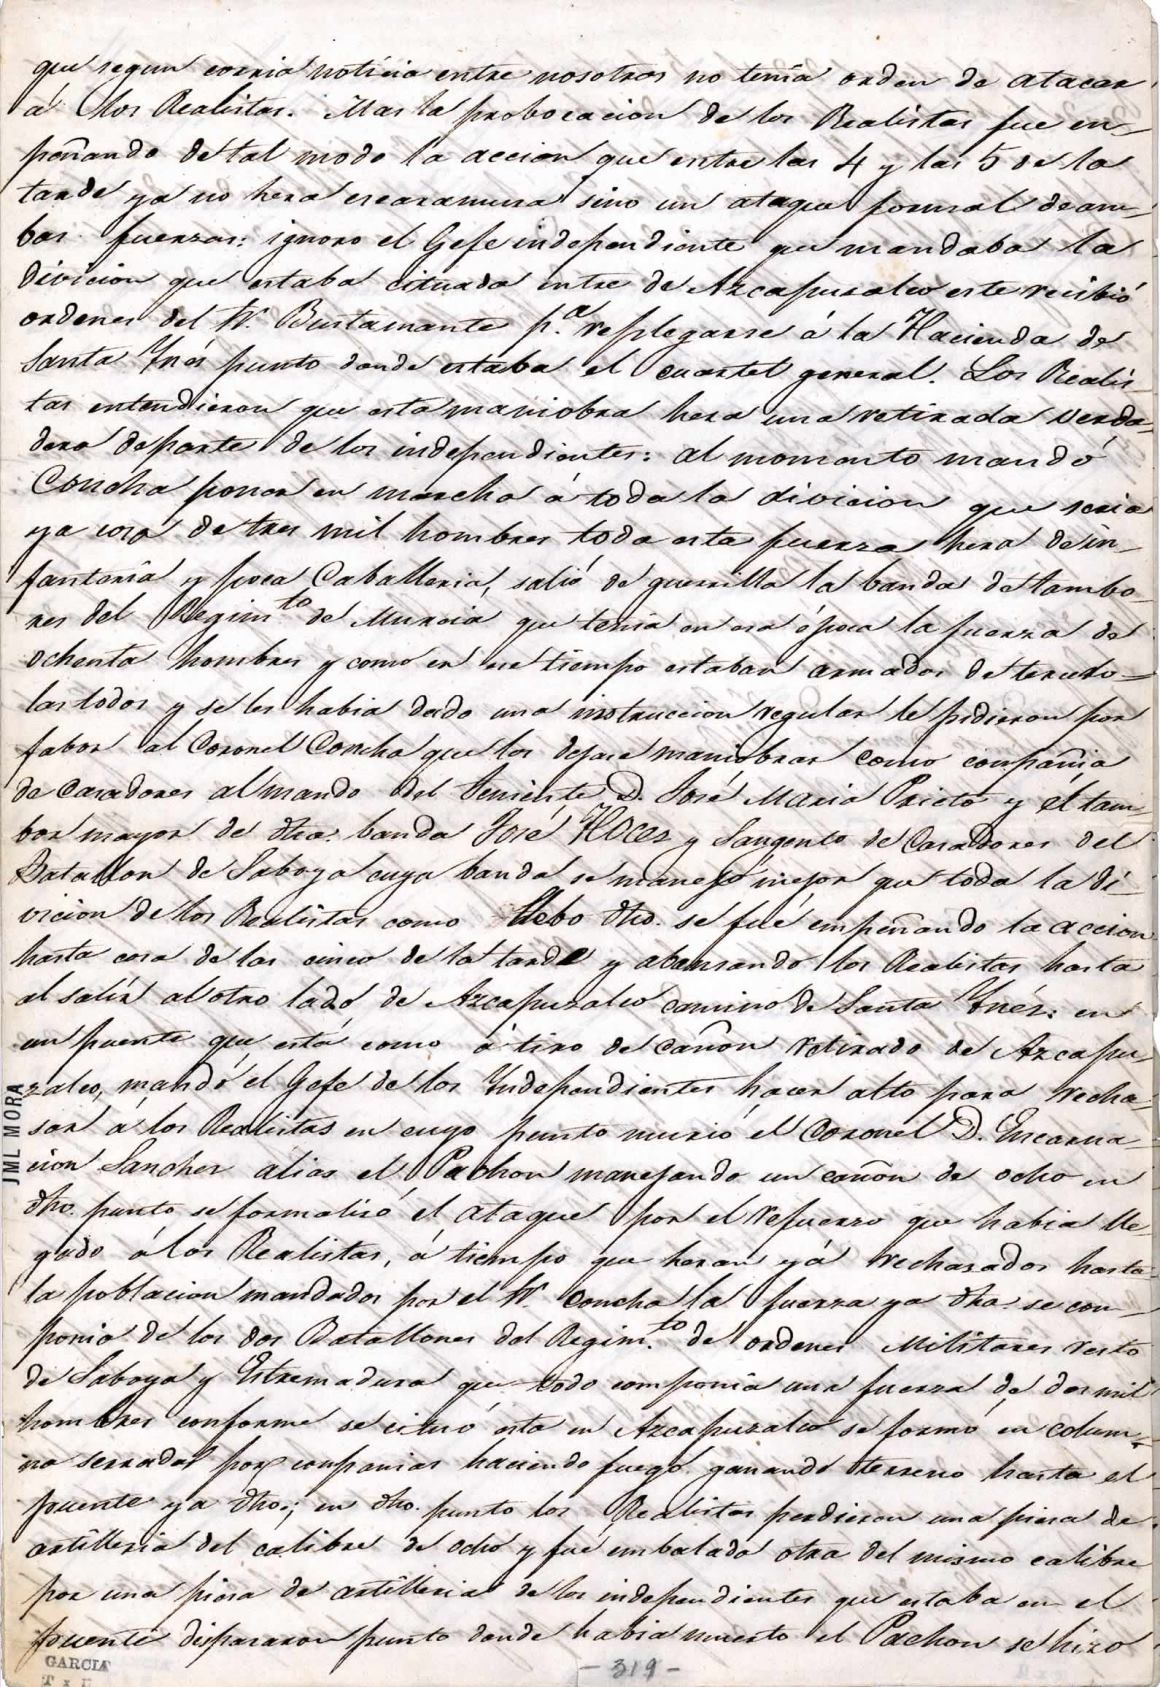 que segun corria noticia entre nosotros no tenia orden de atacar
á los Realistas. Mas la probocacion de los Realistas fue en-
peñando de tal modo la accion que entre las 4 y las 5 de la
tarde ya no hera escaramusa sino un ataque formal de am-
bas fuerzas: ignoro el Gefe independiente que mandaba la
divicion que estaba cituada entre de Azcapuzalco este recibió
ordenes del Sr. Bustamante p.a replegarse á la Hacienda de
Santa Ynés punto donde estaba el cuartel general. Los Realis-
tas entendieron que esta maniobra hera una retirada verda-
dera departe de los independientes: al momento mandó
Concha poner en marcha á toda la divicion que seria
ya cosa de tres mil hombres toda esta fuerza hera de in-
fanteria y poca Caballeria, salió de guerrilla la banda de tambo-
res del Regim.to de Murcia que tenia en esa época la fuerza de
ochenta hombres y como en ese tiempo estaban armados de tercero-
las todos y se les habia dado una instruccion regular le pidieron por
fabor al Coronel Concha que los dejase maniobrar como compañia
de Casadores al mando del Teniente D. José Maria Prieto y el tam-
bor mayor de dha. banda José Hoces y Sargento de Casadores del
Batallon de Saboya cuya banda se manejó mejor que toda la di-
vicion de los Realistas como llebo dho. se fué empeñando la accion
hasta cosa de las cinco de la tarde y abansando los Realistas hasta
al salir al otro lado de Azcapuzalco camino de Santa Ynés: en
un puente que está como á tiro de cañon retirado de Azcapu-
zalco, mandó el Gefe de los Yndependientes hacer alto para recha-
sar á los Realistas en cuyo punto murió el Coronel D. Encarna-
cion Sanches alias el Pachon manejando un cañon de ocho en
dho. punto se formalisó el ataque por el refuerzo que habia lle-
gado á los Realistas, á tiempo que heran yá rechasados hasta
la poblacion mandados por el Sr. Concha la fuerza ya dha. se com-
ponia de los dos Batallones del Regim.to de ordenes Militares resto
de Saboya y Estremadura que todo componia una fuerza de dos mil
hombres conforme se cituó esta en Azcapuzalco se formó en colum-
na serrada por compañias haciendo fuego ganando terreno hasta el
puente ya dho.; en dho. punto los Realistas perdieron una piesa de
artilleria del calibre de ocho y fué embalada otra del mismo calibre
por una piesa de artilleria de los independientes que estaba en el
puente dispararon punto donde habia muerto el Pachon se hizo
JML MORA
GARCIA
- 319 -